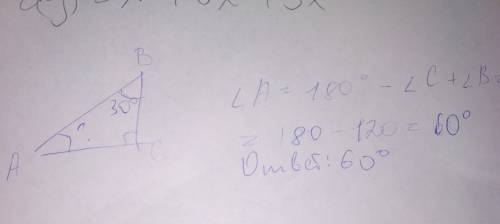 B
30°
?
A
C
∠A = 180° - ∠C + ∠B =
= 180 - 120 = 60°
Ответ: 60°